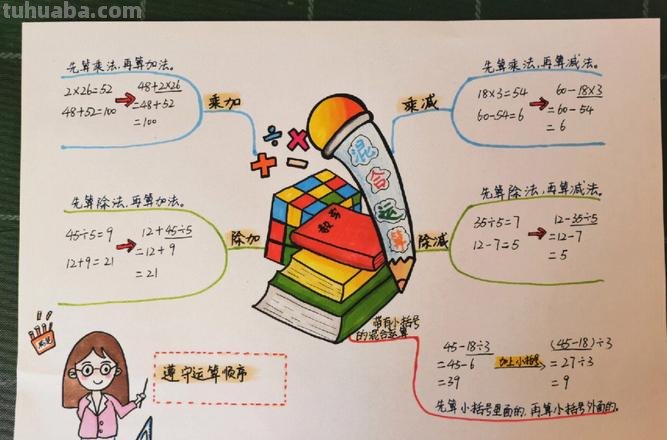 tuhuaba.com
先算乘法，再算加法。
2×26=52
48+52=100
48+2×26
=48+52
=100
乘加
先算乘法，再算减法。
18×3=54
60-54=6
60-18×3
=60-54
=6
乘减
混合运算
数学
先算除法，再算加法。
45÷5=9
12+9=21
12+45÷5
=12+9
=21
除加
先算除法，再算减法。
35÷5=7
12-7=5
12-35÷5
=12-7
=5
除减
带有小括号
的混合运算
45-18÷3
=45-6
=39
加上小括号
(45-18)÷3
=27÷3
=9
先算小括号里面的，再算小括号外面的。
遵守运算顺序